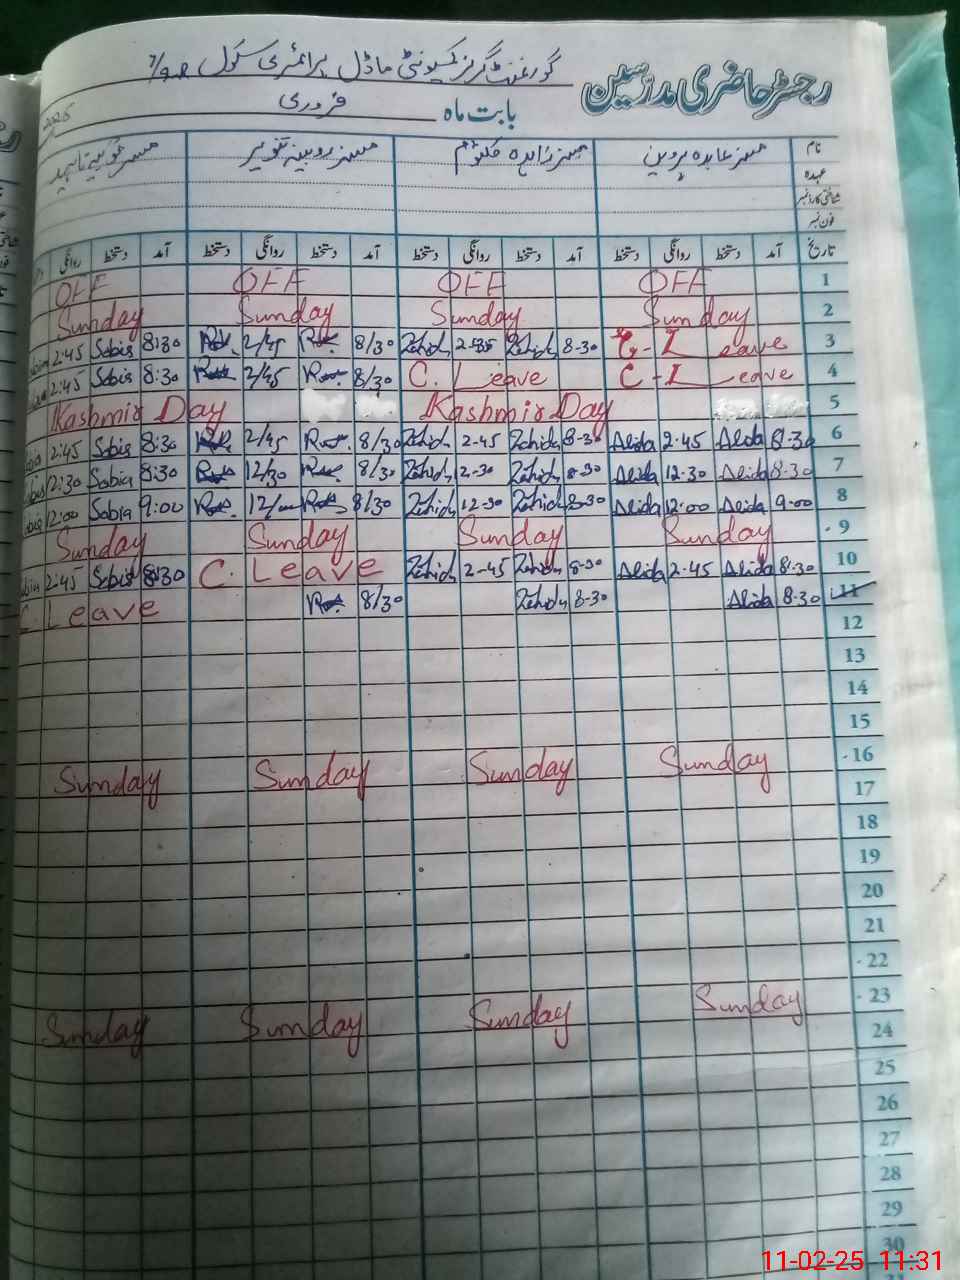 رجسٹر حاضری مدرسین
گورنمنٹ گرلز کمیونٹی ماڈل پرائمری سکول
بابت ماہ فروری 2025
نام مسز عابدہ پروین مسز زاہدہ کلثوم مسز روبینہ تنویر مسز ثوبیہ ناہید
عہدہ
شناختی کارڈ نمبر
فون نمبر
تاریخ آمد دستخط روانگی دستخط آمد دستخط روانگی دستخط آمد دستخط روانگی دستخط آمد دستخط روانگی
OFF OFF OFF OFF 1
Sunday Sunday Sunday Sunday 2
2:45 Sobia 8:30 2/45 8/30 Zahida 2-35 Zahida 8-30 C-L Leave 3
2:45 Sobia 8:30 2/45 8/30 C. Leave C-L Leave 4
Kashmir Day Kashmir Day 5
2:45 Sobia 8:30 2/45 8/30 Zahida 2-45 Zahida 8-30 Abida 2.45 Abida 8-30 6
12:30 Sobia 8:30 12/30 8/30 Zahida 2-30 Zahida 8-30 Abida 12-30 Abida 8-30 7
12:00 Sobia 9:00 8/30 Zahida 12-30 Zahida 8-30 Abida 12:00 Abida 9-00 8
Sunday Sunday Sunday Sunday 9
2:45 Sobia 8:30 C. Leave Zahida 2-45 Zahida 8-30 Abida 2.45 Abida 8.30 10
C. Leave 8/30 Zahida 8-30 Abida 8-30 11
12
13
14
15
Sunday Sunday Sunday Sunday 16
17
18
19
20
21
22
Sunday Sunday Sunday Sunday 23
24
25
26
27
28
29
30
11-02-25 11:31